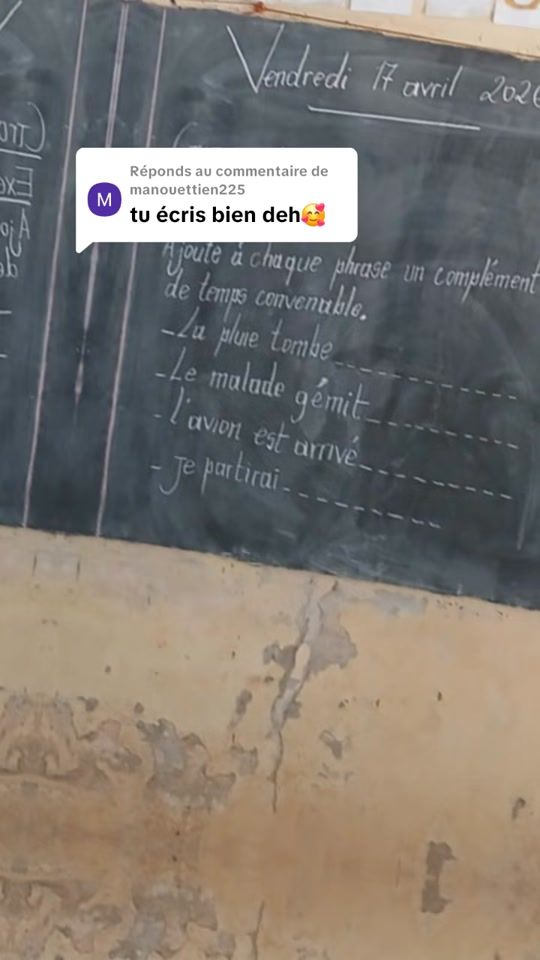 Vendredi 17 avril 2026
Réponds au commentaire de
manouettien225
M
tu écris bien deh🥰
Ajoute à chaque phrase un complément
de temps convenable.
-La pluie tombe
-Le malade gémit
-l'avion est arrivé
-Je partirai